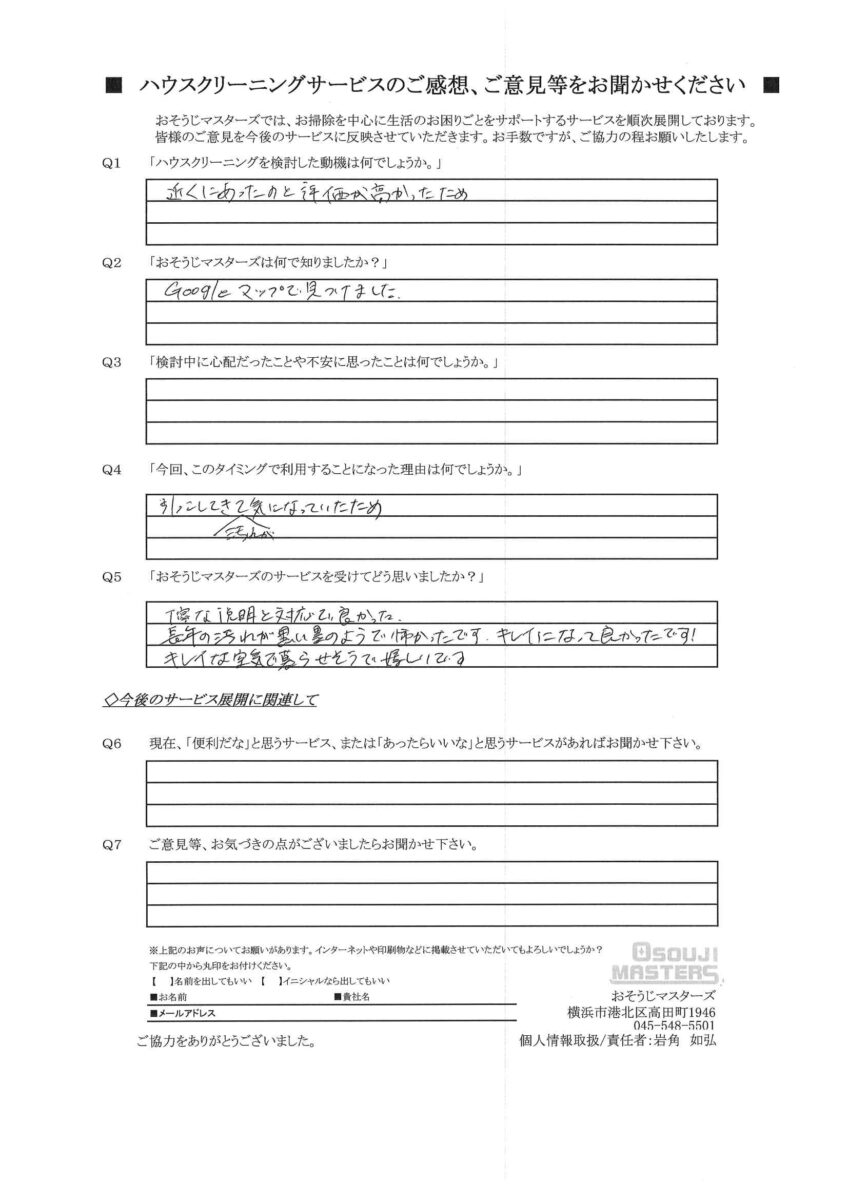 ■ ハウスクリーニングサービスのご感想、ご意見等をお聞かせください ■
おそうじマスターズでは、お掃除を中心に生活のお困りごとをサポートするサービスを順次展開しております。
皆様のご意見を今後のサービスに反映させていただきます。お手数ですが、ご協力の程お願いしたします。
Q1 「ハウスクリーニングを検討した動機は何でしょうか。」
近くにあったのと評価が高かったため
Q2 「おそうじマスターズは何で知りましたか？」
Googleマップで見つけました.
Q3 「検討中に心配だったことや不安に思ったことは何でしょうか。」
Q4 「今回、このタイミングで利用することになった理由は何でしょうか。」
引っこしてきて気になっていたため
汚れが
Q5 「おそうじマスターズのサービスを受けてどう思いましたか？」
丁寧な説明と対応で良かった.
長年の汚れが黒い墨のようで怖かったです. キレイになって良かったです!
キレイな空気で暮らせそうで嬉しいです
◇今後のサービス展開に関連して
Q6 現在、「便利だな」と思うサービス、または「あったらいいな」と思うサービスがあればお聞かせ下さい。
Q7 ご意見等、お気づきの点がございましたらお聞かせ下さい。
※上記のお声についてお願いがあります。インターネットや印刷物などに掲載させていただいてもよろしいでしょうか？
下記の中から丸印をお付けください。
【 】名前を出してもいい 【 】イニシャルなら出してもいい
■お名前 ■貴社名
■メールアドレス
ご協力をありがとうございました。
OSOUJI
MASTERS
おそうじマスターズ
横浜市港北区高田町1946
045-548-5501
個人情報取扱/責任者:岩角 如弘